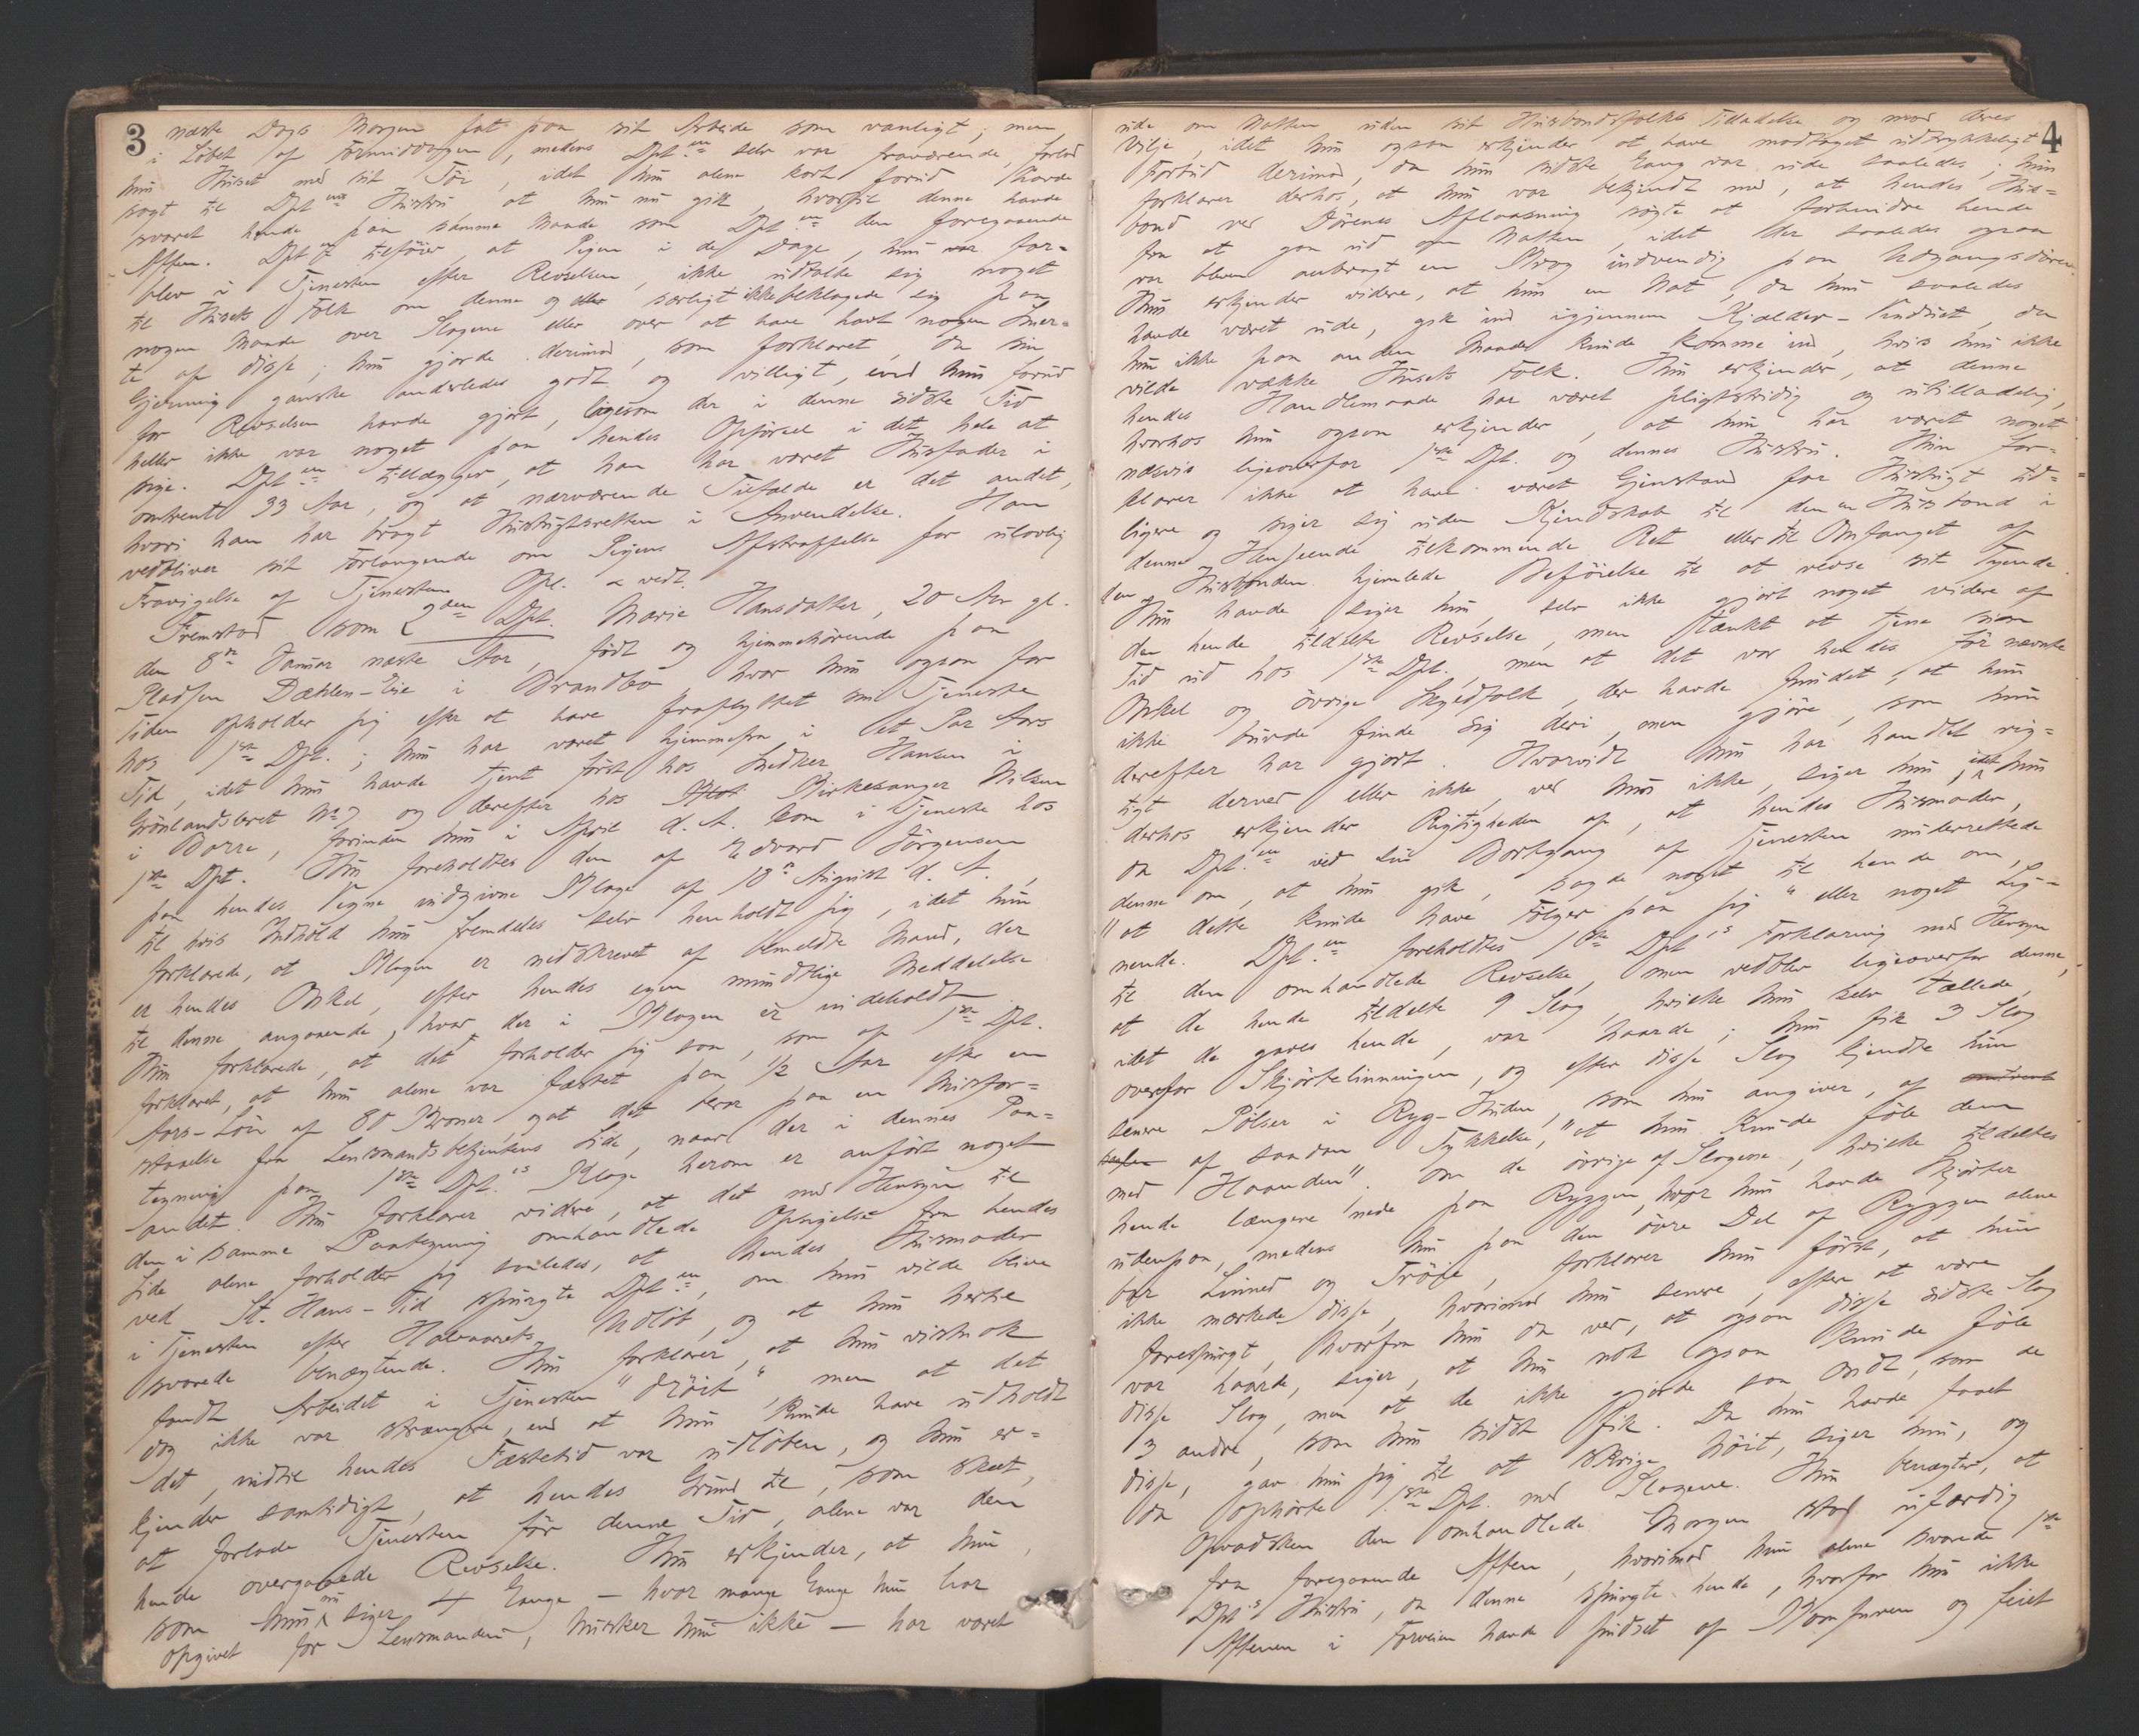 3
næste Dags Morgen fat paa sit Arbeide som vanligt; men
i Løbet af Formiddagen, medens Dpten selv var fraværende, forlod
hun Huset med sit Tøi, idet hun alene kort forud havde
sagt til Dptens Hustru at hun nu gik, hvortil denne havde
svaret hende paa samme Maade som Dpten den foregaaende
Aften. Dpten tilføier, at Pigen i de Dage, hun var for-
blev i Tjenesten efter Revselsen, ikke udtalte sig noget
til Husets Folk om denne og eller særligt ikke beklagede sig paa
nogen Maade over Slagene eller over at have havt nogen Smer-
te af disse; hun gjorde derimod, som forklaret, da sin
Gjerning ganske anderledes godt og villigt, end hun forud
for Revselsen havde gjort, ligesom der i denne sidste Tid
heller ikke var noget paa hendes Opførsel i det hele at
sige. Dpten tillægger, at han har været Husfader i
omtrent 33 Aar, og at nærværende Tilfælde er det andet,
hvori han har bragt Hustugtsretten i Anvendelse. Han
vedbliver sit Forlangende om Pigens Afstraffelse for ulovlig
Fravigelse af Tjenesten. Opl. & vedt.
Fremstod som 2den Dpt. Marie Hansdatter, 20 Aar gl.
den 8de Januar næste Aar, født og hjemmehørende paa
Pladsen Dæhlen-Eie i Brandbo hvor hun ogsaa for
Tiden opholder sig efter at have fraflyttet sin Tjeneste
hos 1ste Dpt.; hun har været hjemmefra i Et Par Aars
Tid, idet hun havde tjent først hos Snedker Hansen i
Grønlandsleret No 7 og derefter hos Kirkesanger Nilsen
i Borre, forinden hun i April d. A. kom i Tjeneste hos
1ste Dpt. Hun foreholdtes den af Edvard Jørgensen
paa hendes Vegne indgivne Klage af 18de August d. A.,
til hvis Indhold hun fremdeles selv henholdt sig, idet hun
forklarede, at Klagen er nedskrevet af bemeldte Mand, der
er hendes Onkel, efter hendes egen mundtlige Meddelelse
til denne angaaende, hvad der i Klagen er indeholdt.
Hun forklarede, at det forholder sig saa, som af 1ste Dpt.
forklaret, at hun alene var fæstet paa 1/2 Aar efter en
Aars-Løn af 80 Kroner, og at det beror paa en Misfor-
staaelse fra Lensmandsbetjentens Side, naar der i dennes Paa-
tegning paa 1ste Dpt.'s Klage herom er anført noget
andet. Hun forklarer videre, at det med Hensyn til
den i samme Paategning omhandlede Opsigelse fra hendes
Side alene forholder sig saaledes, at hendes Husmoder
ved St. Hans-Tid spurgte Dpten, om hun vilde blive
i Tjenesten efter Halvaarets Udløb, og at hun hertil
svarede benægtende. Hun forklarer, at hun vistnok
fandt Arbeidet i Tjenesten "drøit", men at det
dog ikke var strængere, end at hun kunde have udholdt
det, indtil hendes Fæstetid var udløben, og hun er-
kjender samtidigt, at hendes Grund til, som skeet,
at forlade Tjenesten før denne Tid, alene var den
hende overgaaede Revselse. Hun erkjender, at hun,
som hun nu siger, 4 Gange — hvor mange Gange hun har
opgivet for Lensmanden, husker hun ikke — har været
4
ude om Natten uden sit Husbondsfolks Tilladelse og mod deres
Vilje, idet hun ogsaa erkjender at have modtaget udtrykkeligt
Forbud derimod, da hun sidste Gang var ude saaledes; hun
forklarer derhos, at hun var bekjendt med, at hendes Hus-
bond ved Dørenes Aflaasning søgte at forhindre hende
fra at gaa ud om Natten, idet der saaledes ogsaa
var bleven anbragt en Krog indvendig paa Udgangsdøren.
Hun erkjender videre, at hun en Nat, da hun saaledes
havde været ude, gik ind igjennem Kjælder-Vinduet, da
hun ikke paa anden Maade kunde komme ind, hvis hun ikke
vilde vække Husets Folk. Hun erkjender, at denne
hendes Handlemaade har været pligtstridig og utilladelig,
hvorhos hun ogsaa erkjender, at hun har været noget
næsvis ligeoverfor 1ste Dpt. og dennes Hustru. Hun for-
klarer ikke at have været Gjenstand for Hustugt tid-
ligere og siger sig uden Kjendskab til den en Husbond i
denne Henseende tilkommende Ret eller til Omfanget af
den Husbonden hjemlede Beføielse til at revse sit Tyende.
Hun havde, siger hun, selv ikke gjort noget videre af
den hende tildelte Revselse, men tænkt at tjene sin
Tid ud hos 1ste Dpt., men at det var hendes før nævnte
Onkel og øvrige Skyldfolk, der havde fundet, at hun
ikke burde finde sig deri, men gjøre, som hun
derefter har gjort. Hvorvidt hun har handlet rig-
tigt derved eller ikke, ved hun ikke, siger hun, idet hun
derhos erkjender Rigtigheden af, at hendes Husmoder,
da Dpt.en ved sin Bortgang af Tjenesten underrettede
denne om, at hun gik, sagde noget til hende om,
"at dette kunde have Følger paa sig" eller noget Lig-
nende. Dpt.en foreholdtes 1ste Dpt's Forklaring med Hensyn
til den omhandlede Revselse, men vedblev ligeoverfor denne,
at de hende tildelte 9 Slag, hvilke hun selv tællede,
idet de gaves hende, var haarde; hun fik 3 Slag
ovenfor Skjørtelinningen, og efter disse Slag kjendte hun
senere Pølser i Ryg-Huden, som hun angiver, af omtrent
af saadan Tykkelse, "at hun kunde føle dem
med Haanden". Om de øvrige af Slagene, hvilke tildeltes
hende længere nede paa Ryggen, hvor hun havde Skjørter
udenpaa, medens hun paa den øvre Del af Ryggen alene
bar Linned og Trøie, forklarer hun først, at hun
ikke mærkede disse, hvorimod hun senere, efter at være
forespurgt, hvorfra hun da ved, at ogsaa disse sidste Slag
var haarde, siger, at hun nok ogsaa kunde føle
disse Slag, men at de ikke gjorde saa ondt, som de
3 andre, som hun sidst fik. Da hun havde faaet
disse, gav hun sig til at skrige høit, siger hun, og
da ophørte 1ste Dpt. med Slagene. Hun benægter, at
Opvasken den omhandlede Morgen stod ufærdig
fra foregaaende Aften, hvorimod hun alene svarede 1ste
Dpt's Hustru, da denne spurgte hende, hvorfor hun ikke
Aftenen i Forveien havde pudset af Komfuren og feiet